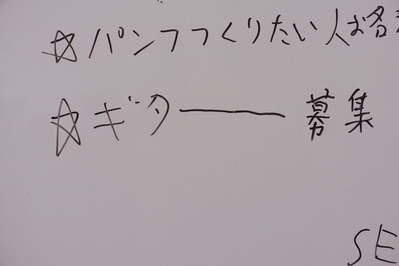 ☆パンフつくりたい人お名
☆ギター 募集
SE